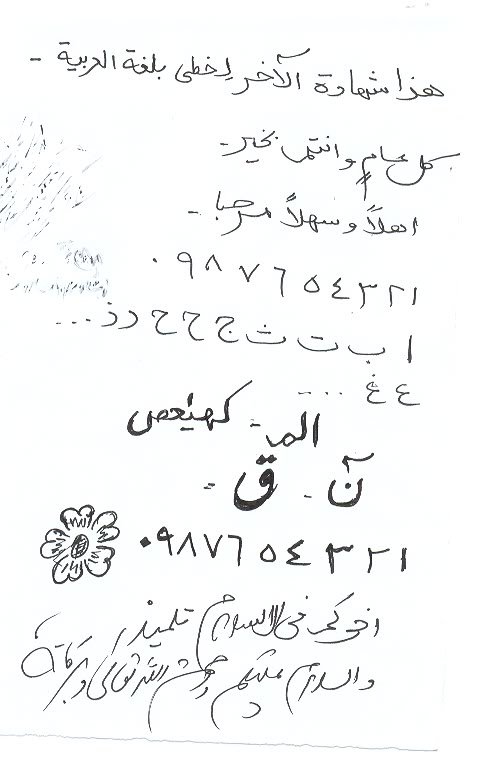 هذا شهادة الآخر لخطي بلغة العربية -
كل عام وانتم بخير -
اهلاً وسهلاً مرحبا -
١ ٢ ٣ ٤ ٥ ٦ ٧ ٨ ٩ ٠
ا ب ت ث ج ح خ د ذ ...
ع غ ....
الم - كهيعص
ن - ق -
١ ٢ ٣ ٤ ٥ ٦ ٧ ٨ ٩ ٠
اخوكم في الاسلام تلميذ
والسلام عليكم ورحمة الله تعالى وبركاته